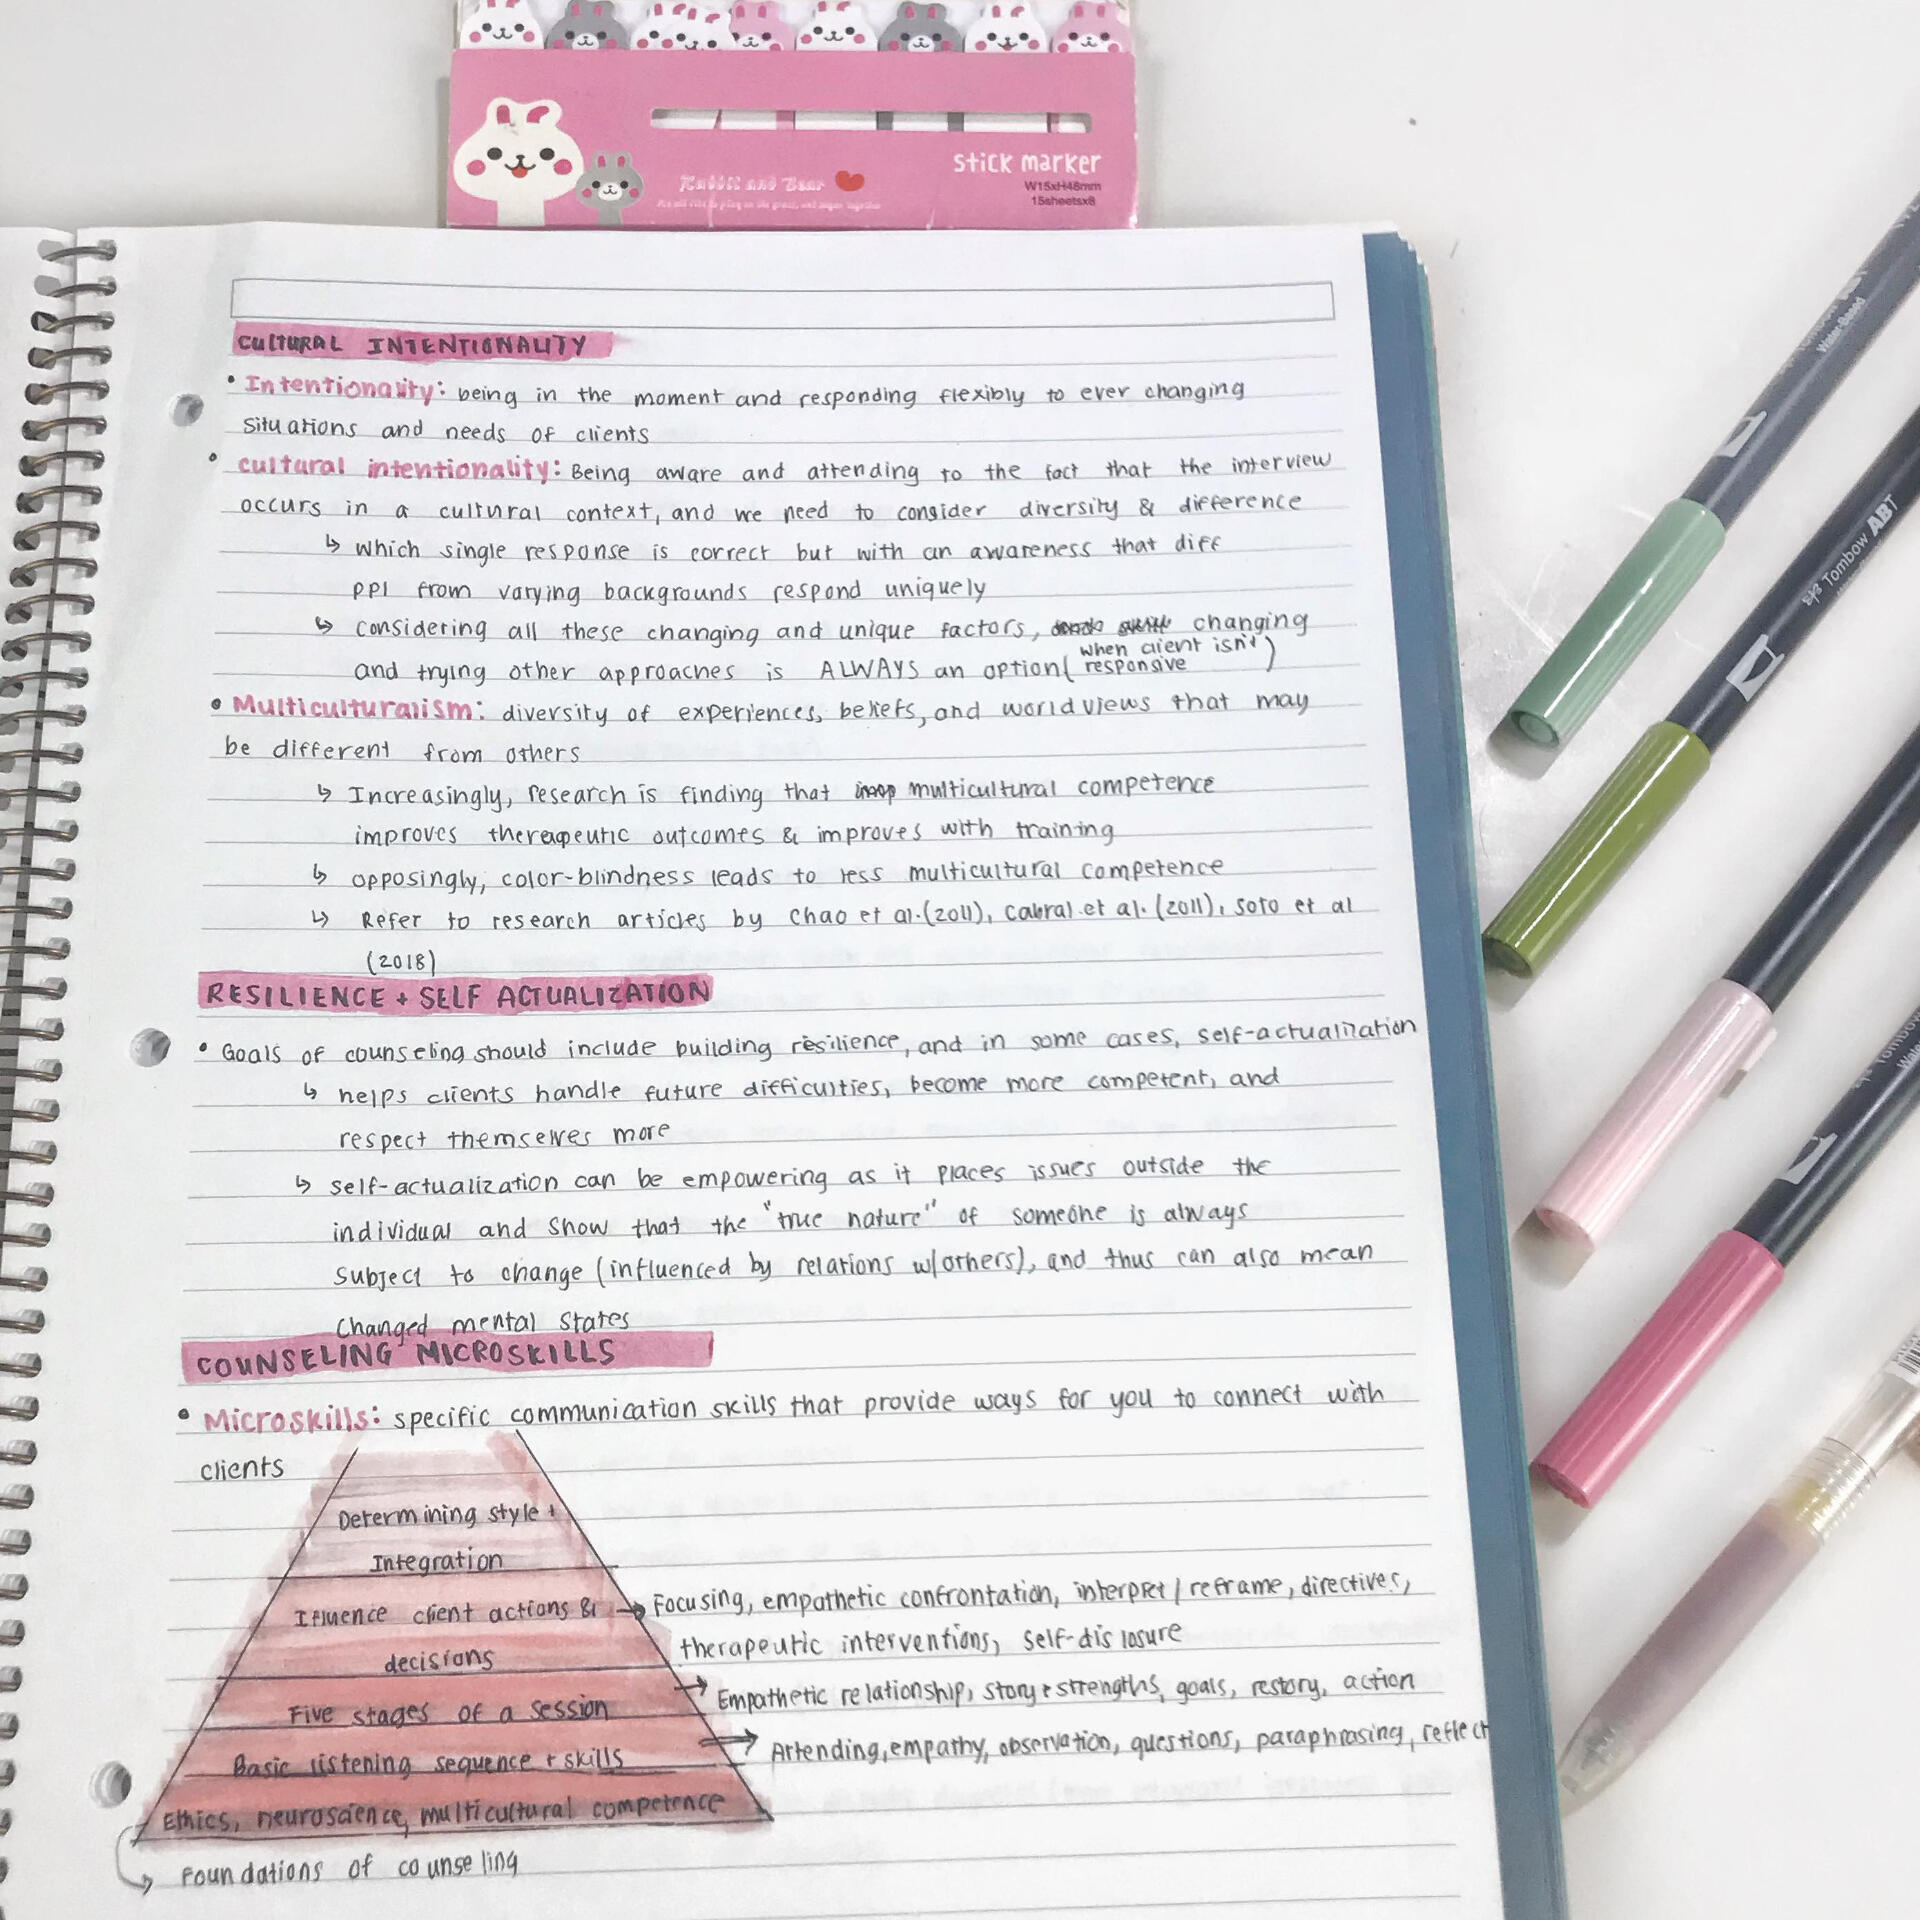 stick marker
Rabbit and Bear
W15xH48mm
15sheetsx8
CULTURAL INTENTIONALITY
• Intentionality: being in the moment and responding flexibly to ever changing
situations and needs of clients
• cultural intentionality: Being aware and attending to the fact that the interview
occurs in a cultural context, and we need to consider diversity & difference
↳ which single response is correct but with an awareness that diff
ppl from varying backgrounds respond uniquely
↳ considering all these changing and unique factors, changing
when client isn't
and trying other approaches is ALWAYS an option ( responsive )
• Multiculturalism: diversity of experiences, beliefs, and worldviews that may
be different from others
↳ Increasingly, research is finding that multicultural competence
improves therapeutic outcomes & improves with training
↳ opposingly, color-blindness leads to less multicultural competence
↳ Refer to research articles by Chao et al. (2011), Cabral et al. (2011), Soto et al
(2018)
RESILIENCE + SELF ACTUALIZATION
• Goals of counseling should include building resilience, and in some cases, self-actualization
↳ helps clients handle future difficulties, become more competent, and
respect themselves more
↳ self-actualization can be empowering as it places issues outside the
individual and show that the "true nature" of someone is always
subject to change (influenced by relations w/others), and thus can also mean
changed mental states
COUNSELING MICROSKILLS
• Microskills: specific communication skills that provide ways for you to connect with
clients
Determining style +
Integration
Ifluence client actions & → Focusing, empathetic confrontation, interpret / reframe, directives,
therapeutic interventions, self-disclosure
decisions
→ Empathetic relationship, story + strengths, goals, restory, action
Five stages of a session
→ Attending, empathy, observation, questions, paraphrasing, reflect
Basic listening sequence + skills
Ethics, neuroscience, multicultural competence
↳ Foundations of counseling
Water-Based
Tombow ABT
Tombow